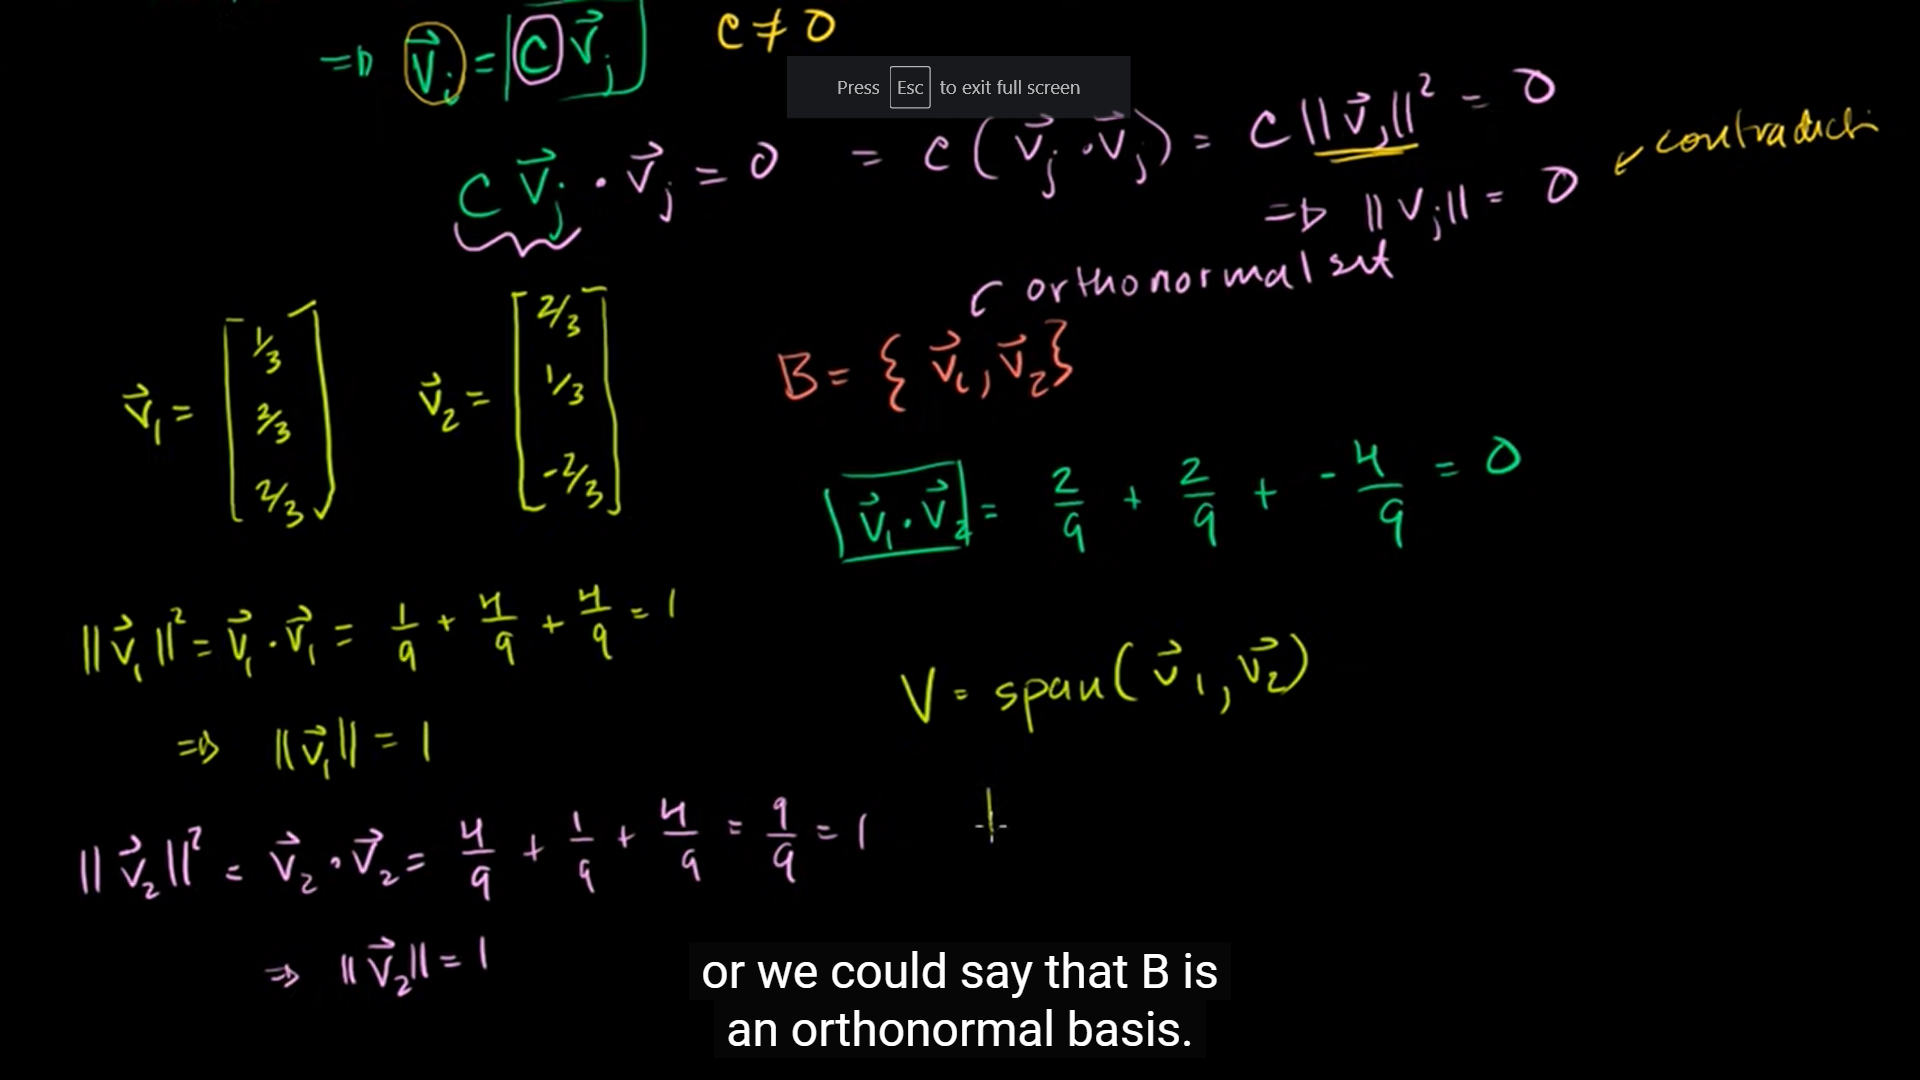 => v⃗ᵢ = c v⃗ⱼ    c ≠ 0
Press Esc to exit full screen
c v⃗ⱼ · v⃗ⱼ = 0 = c (v⃗ⱼ · v⃗ⱼ) = c ||v⃗ⱼ||² = 0
contradicti
=> ||vⱼ|| = 0
orthonormal set
B = { v⃗₁, v⃗₂ }
v⃗₁ = [ 1/3 2/3 2/3 ]    v⃗₂ = [ 2/3 1/3 -2/3 ]
v⃗₁ · v⃗₂ = 2/9 + 2/9 + -4/9 = 0
||v⃗₁||² = v⃗₁ · v⃗₁ = 1/9 + 4/9 + 4/9 = 1
V = span(v⃗₁, v⃗₂)
=> ||v⃗₁|| = 1
||v⃗₂||² = v⃗₂ · v⃗₂ = 4/9 + 1/9 + 4/9 = 9/9 = 1
=> ||v⃗₂|| = 1
or we could say that B is
an orthonormal basis.